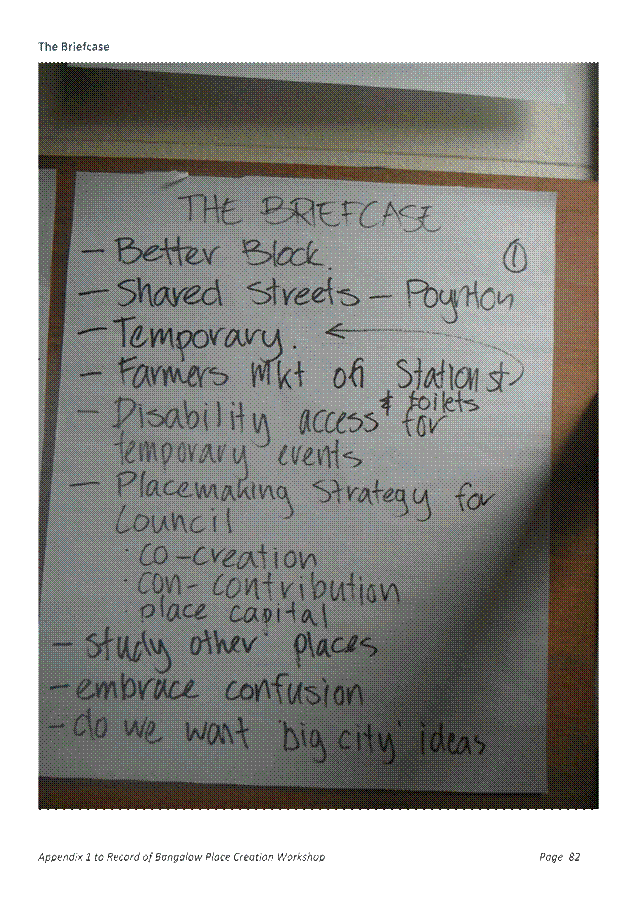 The Briefcase
THE BRIEFCASE
- Better Block.
①
- Shared Streets - Poynton
- Temporary.
- Farmers Mkt on Station St
- Disability access & toilets for
temporary events
- Placemaking Strategy for
Council
· co-creation
· con-contribution
· place capital
- study other places
- embrace confusion
- do we want 'big city' ideas
Appendix 1 to Record of Bangalow Place Creation Workshop
Page 82